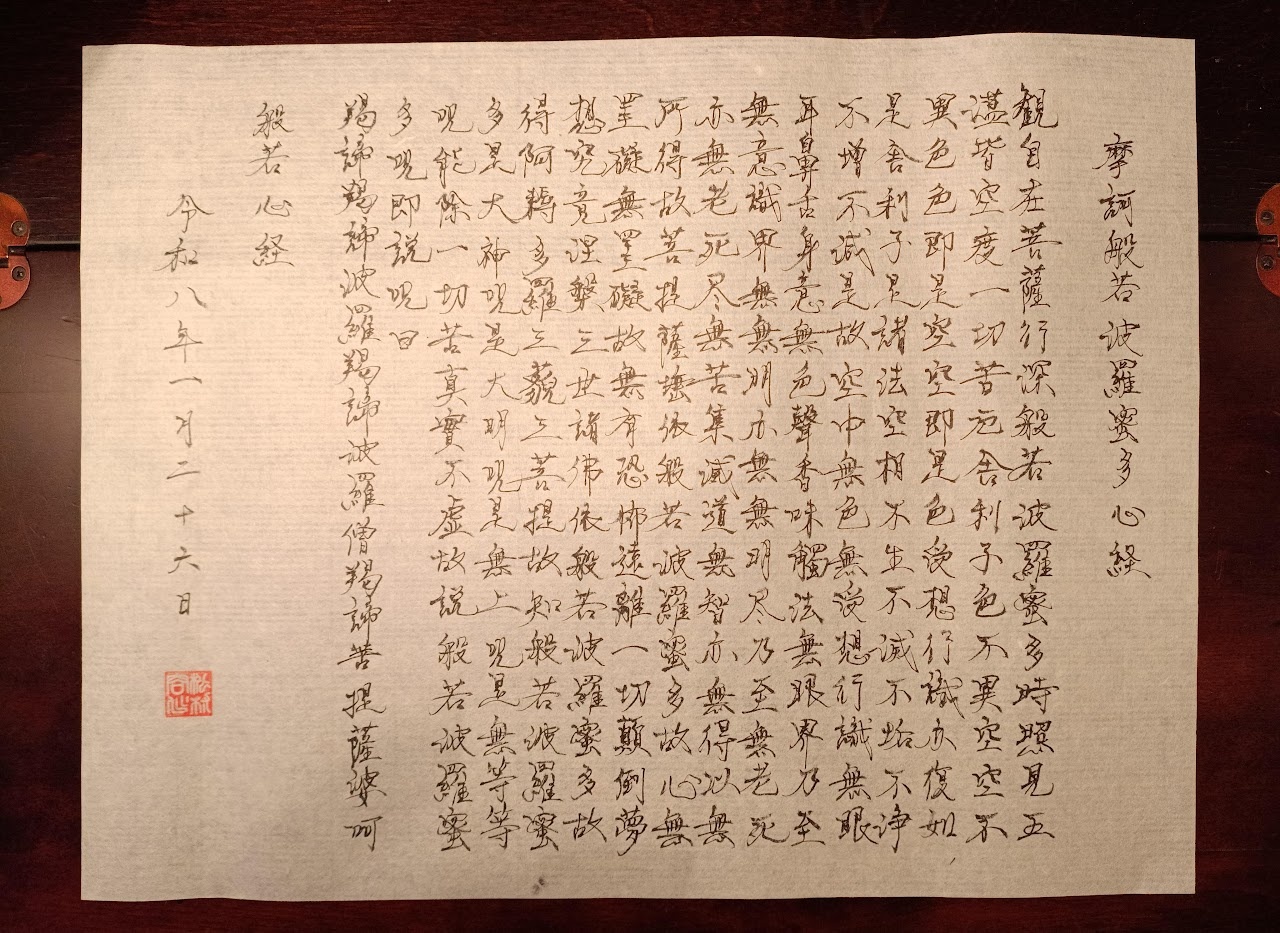 摩訶般若波羅蜜多心経
観自在菩薩行深般若波羅蜜多時照見五
蘊皆空度一切苦厄舎利子色不異空空不
異色色即是空空即是色受想行識亦復如
是舎利子是諸法空相不生不滅不垢不浄
不増不減是故空中無色無受想行識無眼
耳鼻舌身意無色聲香味觸法無眼界乃至
無意識界無無明亦無無明尽乃至無老死
亦無老死尽無苦集滅道無智亦無得以無
所得故菩提薩埵依般若波羅蜜多故心無
罣礙無罣礙故無有恐怖遠離一切顛倒夢
想究竟涅槃三世諸佛依般若波羅蜜多故
得阿耨多羅三藐三菩提故知般若波羅蜜
多是大神呪是大明呪是無上呪是無等等
呪能除一切苦真實不虚故説般若波羅蜜
多呪即説呪曰
羯諦羯諦波羅羯諦波羅僧羯諦菩提薩婆呵
般若心経
令和八年一月二十六日